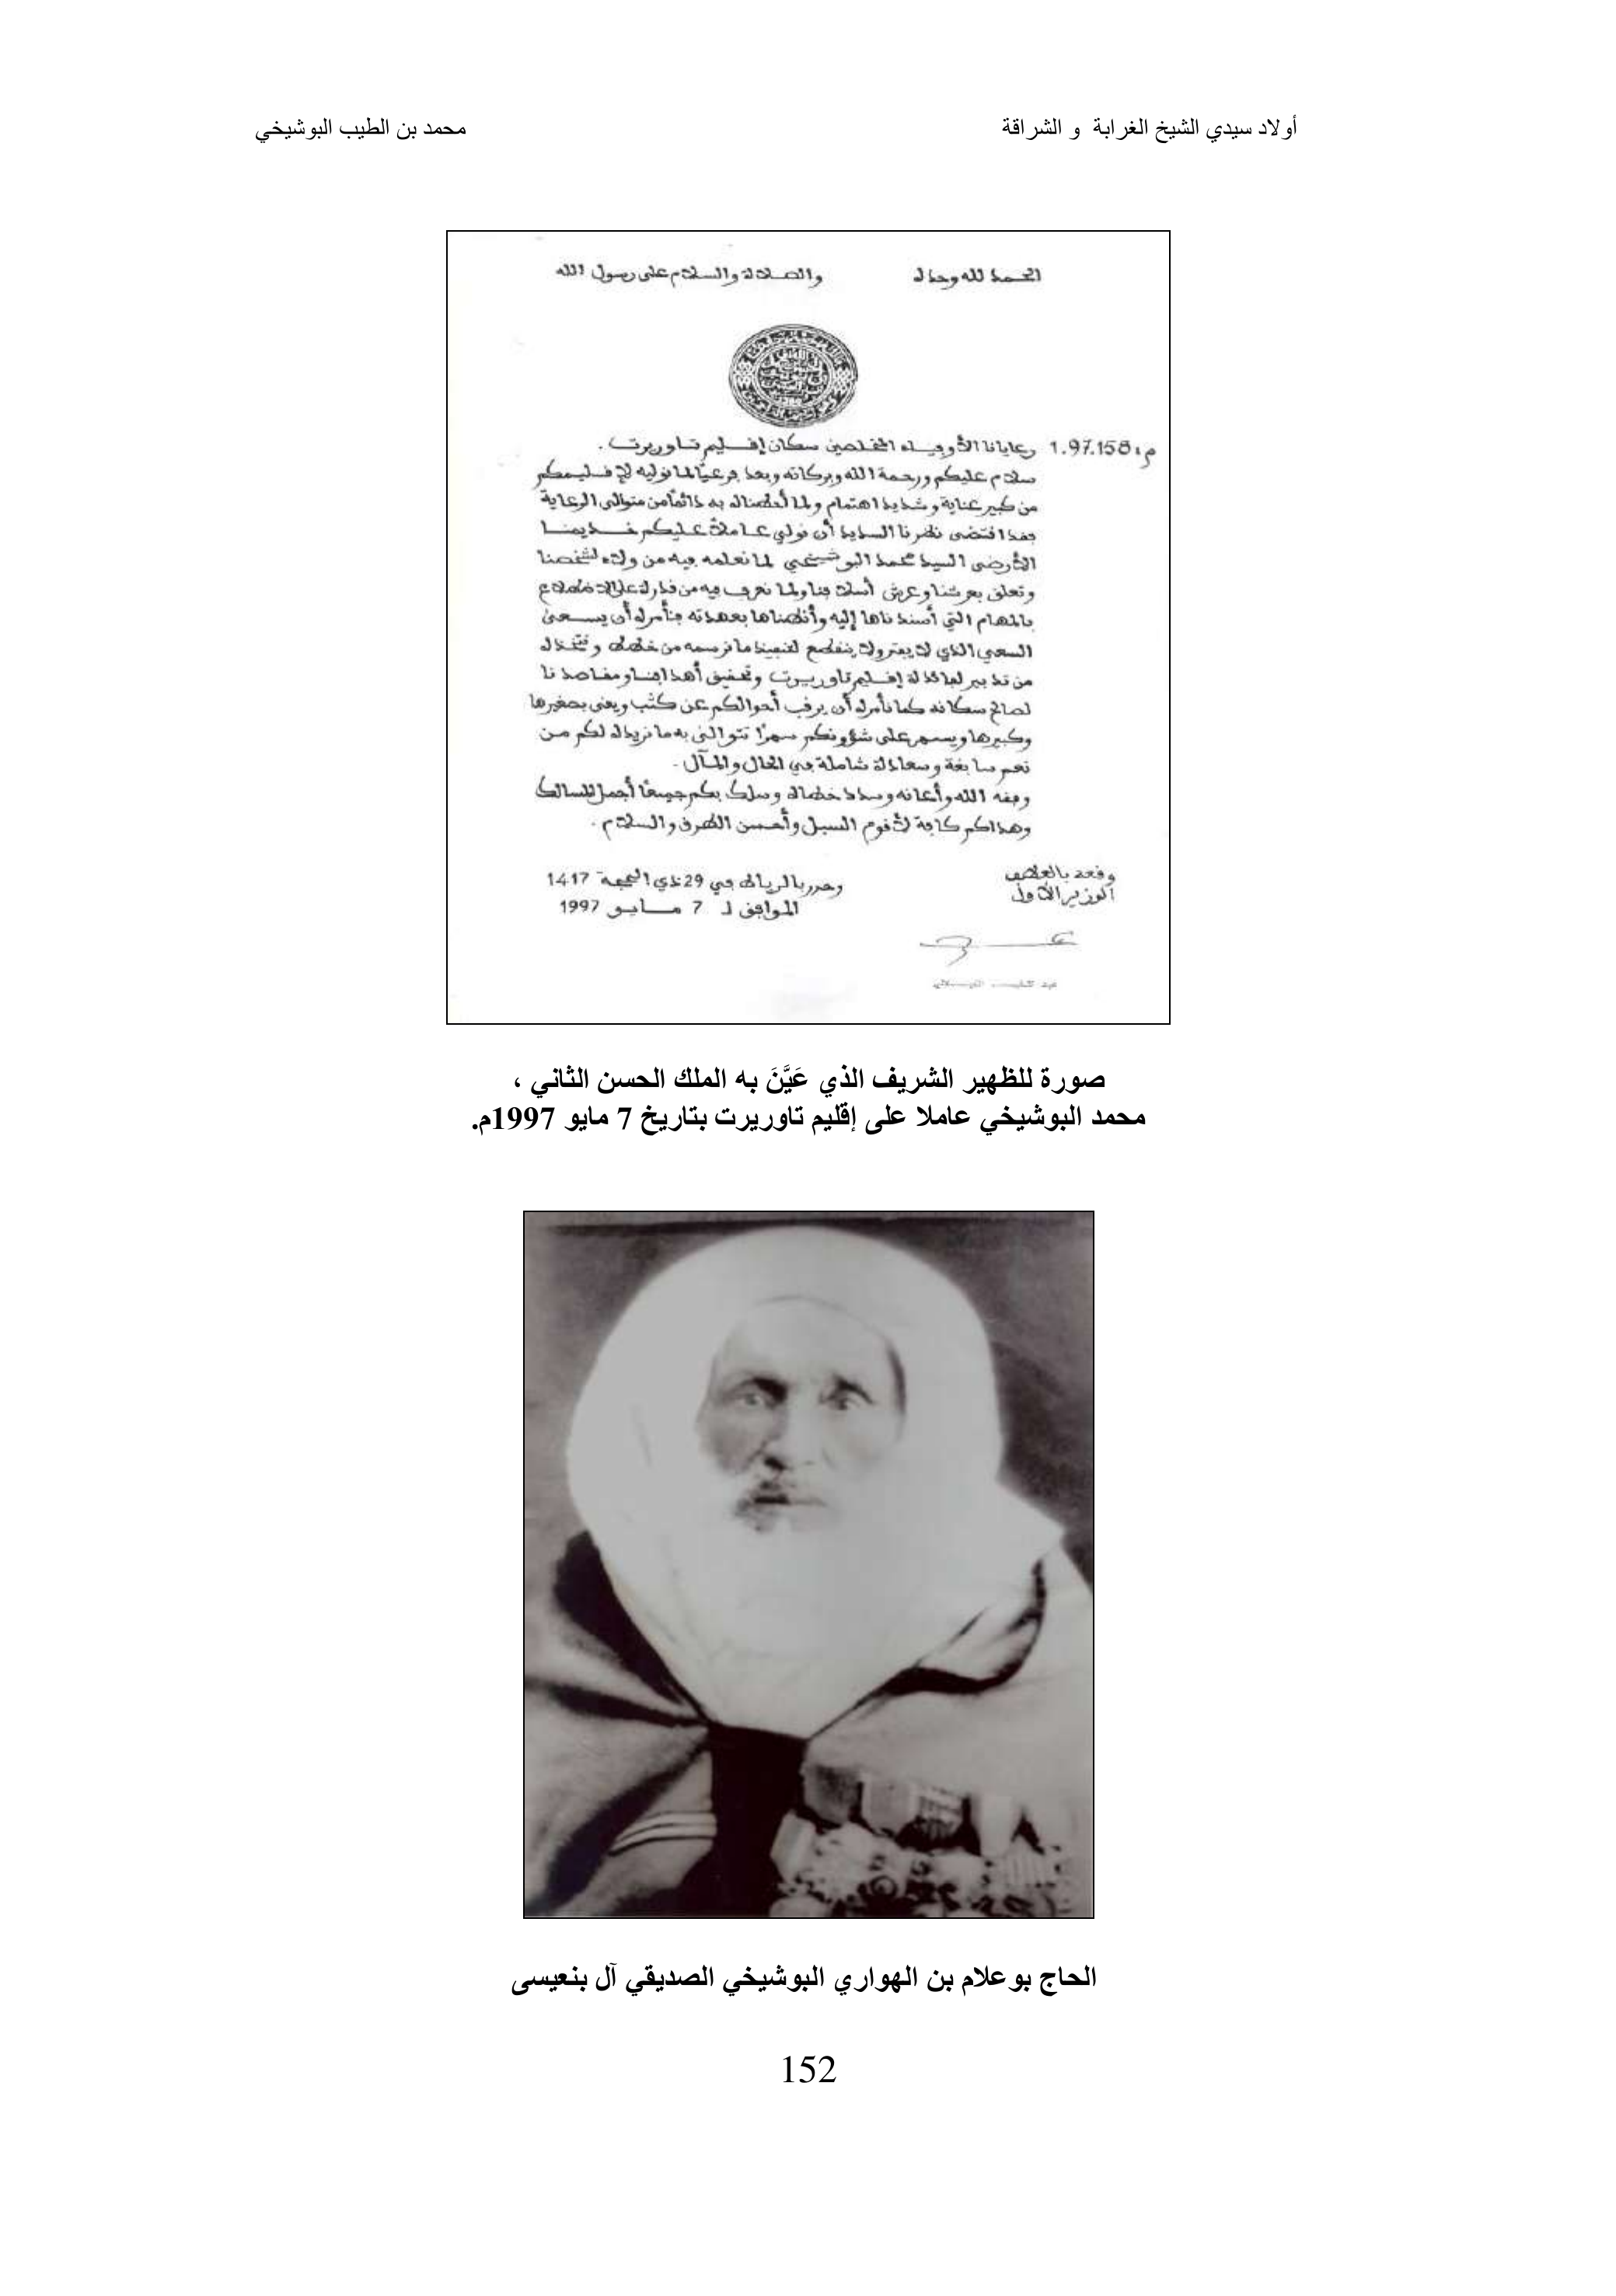 أولاد سيدي الشيخ الغرابة و الشراقة
محمد بن الطيب البوشيخي
الحمد لله وحده
والصلاة والسلام على رسول الله
1.97.158
رعايانا الأوفياء المخلصين سكان إقليم تاوريرت .
سلام عليكم ورحمة الله وبركاته وبعد فرعيا لما نوليه لإقليمكم
من كبير عناية وشديد اهتمام ولما أحطناه به دائما من متوالى الرعاية
فقد اقتضى نظرنا السديد أن نولي عاملا عليكم خديمنا
الأرضى السيد محمد البوشيخي لما نعلمه فيه من ولاء لشخصنا
وتعلق بعرشنا وعرش أسلافنا ولما نعرف فيه من قدرة على الاضطلاع
بالمهام التي أسندناها إليه وأنطناها بعهدته فنأمره أن يسعى
السعي الذي لا يفتر ولا ينقطع لتنفيذ ما نرسمه من خطط ونتخذه
من تدبير لفائدة إقليم تاوريرت وتحقيق أهدافنا ومقاصدنا
لصالح سكانه كما نأمره أن يرقب أحوالكم عن كثب ويعنى بصغيرها
وكبيرها ويسهر على شؤونكم سهرا تتوالى به ما نريده لكم من
نعم سابغة وسعادة شاملة في الحال والمآل .
وفقه الله وأعانه وسدد خطاه وسلك بكم جميعا أجمل المسالك
وهداكم كافة لأقوم السبل وأحسن الطرق والسلام .
وقعه بالعطف
الوزير الأول
وحرر بالرباط في 29 ذي الحجة 1417
الموافق لـ 7 مايو 1997
صورة للظهير الشريف الذي عَيَّنَ به الملك الحسن الثاني ،
محمد البوشيخي عاملا على إقليم تاوريرت بتاريخ 7 مايو 1997م.
الحاج بوعلام بن الهواري البوشيخي الصديقي آل بنعيسى
152